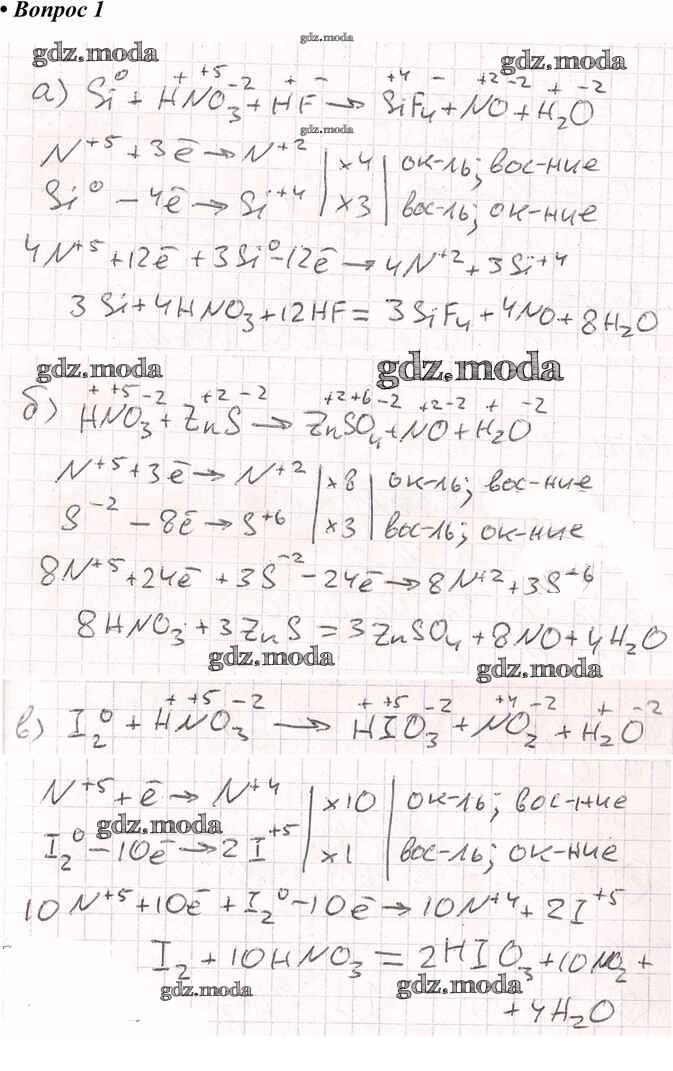 • Вопрос 1
gdz.moda
gdz.moda
gdz.moda
0 + +5 -2 + - +4 - +2 -2 + -2
а) Si + HNO₃ + HF → SiF₄ + NO + H₂O
gdz.moda
N⁺⁵ + 3ē → N⁺² | ×4 | ок-ль; вос-ние
Si⁰ - 4ē → Si⁺⁴ | ×3 | вос-ль; ок-ние
4N⁺⁵ + 12ē + 3Si⁰ - 12ē → 4N⁺² + 3Si⁺⁴
3Si + 4HNO₃ + 12HF = 3SiF₄ + 4NO + 8H₂O
gdz.moda
gdz.moda
+ +5 -2 +2 -2 +2 +6 -2 +2 -2 + -2
б) HNO₃ + ZnS → ZnSO₄ + NO + H₂O
N⁺⁵ + 3ē → N⁺² | ×8 | ок-ль; вос-ние
S⁻² - 8ē → S⁺⁶ | ×3 | вос-ль; ок-ние
8N⁺⁵ + 24ē + 3S⁻² - 24ē → 8N⁺² + 3S⁺⁶
8HNO₃ + 3ZnS = 3ZnSO₄ + 8NO + 4H₂O
gdz.moda
gdz.moda
+ +5 -2 + +5 -2 +4 -2 + -2
в) I₂⁰ + HNO₃ → HIO₃ + NO₂ + H₂O
N⁺⁵ + ē → N⁺⁴ | ×10 | ок-ль; вос-ние
gdz.moda
I₂⁰ - 10ē → 2I⁺⁵ | ×1 | вос-ль; ок-ние
10N⁺⁵ + 10ē + I₂⁰ - 10ē → 10N⁺⁴ + 2I⁺⁵
I₂ + 10HNO₃ = 2HIO₃ + 10NO₂ +
gdz.moda
gdz.moda
+ 4H₂O